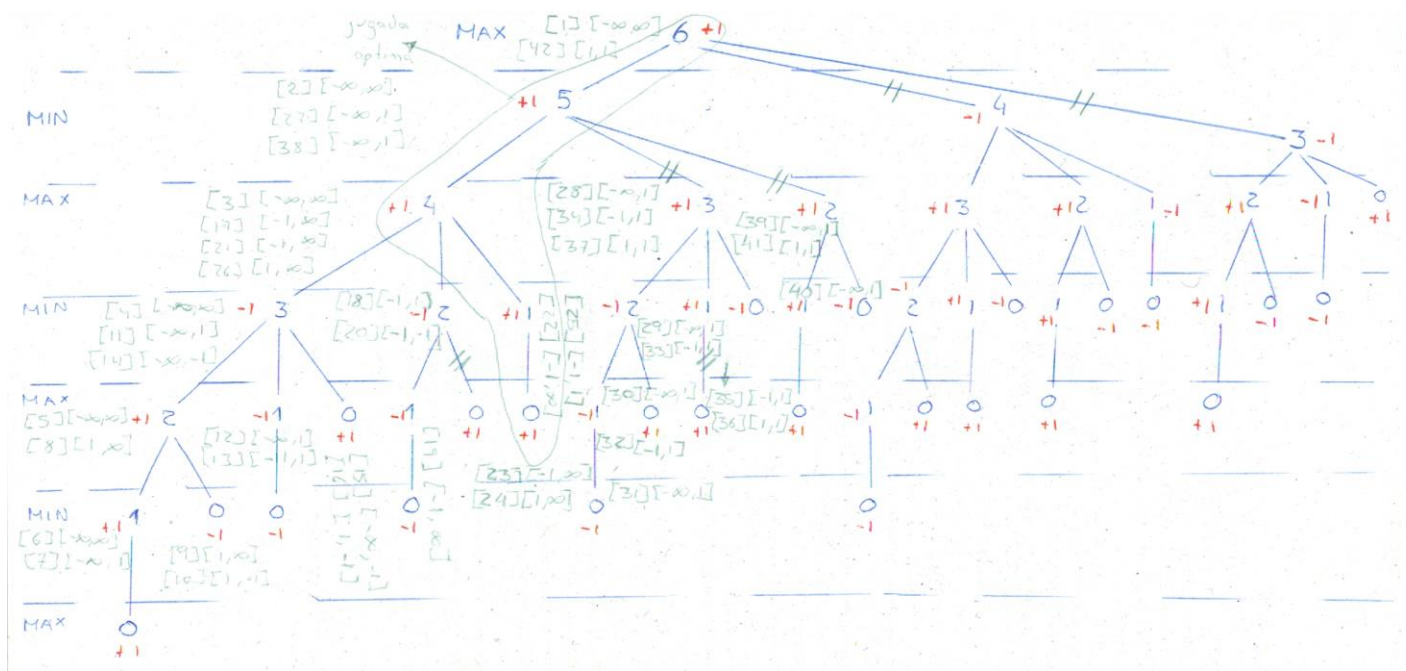 jugada
optima
MAX
[1] [-∞,∞]
[42] [1,1]
6 +1
MIN
[2] [-∞,∞]
[27] [-∞,1]
[38] [-∞,1]
+1 5
-1 4
3 -1
MAX
[3] [-∞,∞]
[17] [-1,∞]
[21] [-1,∞]
[26] [1,∞]
+1 4
[28] [-∞,1]
[34] [-1,1]
[37] [1,1]
+1 3
+1 2
[39] [-∞,1]
[41] [1,1]
+1 3
+1 2
1 -1
+1 2
-1 1
0
+1
MIN
[4] [-∞,∞]
[11] [-∞,1]
[14] [-∞,-1]
-1 3
[20] [-1,-1]
-1 2
+1 1
-1 2
[29] [-∞,1]
[33] [-1,1]
+1 1
-1 0
[40] [-∞,1]
+1 1
-1 0
-1 2
+1 1
-1 0
+1 1
0 -1
0 -1
+1 1
0 -1
0 -1
MAX
[5] [-∞,∞]
[8] [1,∞]
+1 2
[12] [-∞,1]
[13] [-1,1]
-1 1
0 +1
-1 1
0 +1
0 +1
-1 1
[30] [-∞,1]
0 +1
0 +1
[32] [-1,1]
[35] [-1,1]
[36] [1,1]
0 +1
-1 1
0 +1
0 +1
0 +1
0 +1
[23] [-1,∞]
[24] [1,∞]
[31] [-∞,1]
MIN
[6] [-∞,∞]
[7] [-∞,1]
+1 1
0 -1
[9] [1,∞]
[10] [1,-1]
0 -1
0 -1
0 -1
0 -1
MAX
0
+1